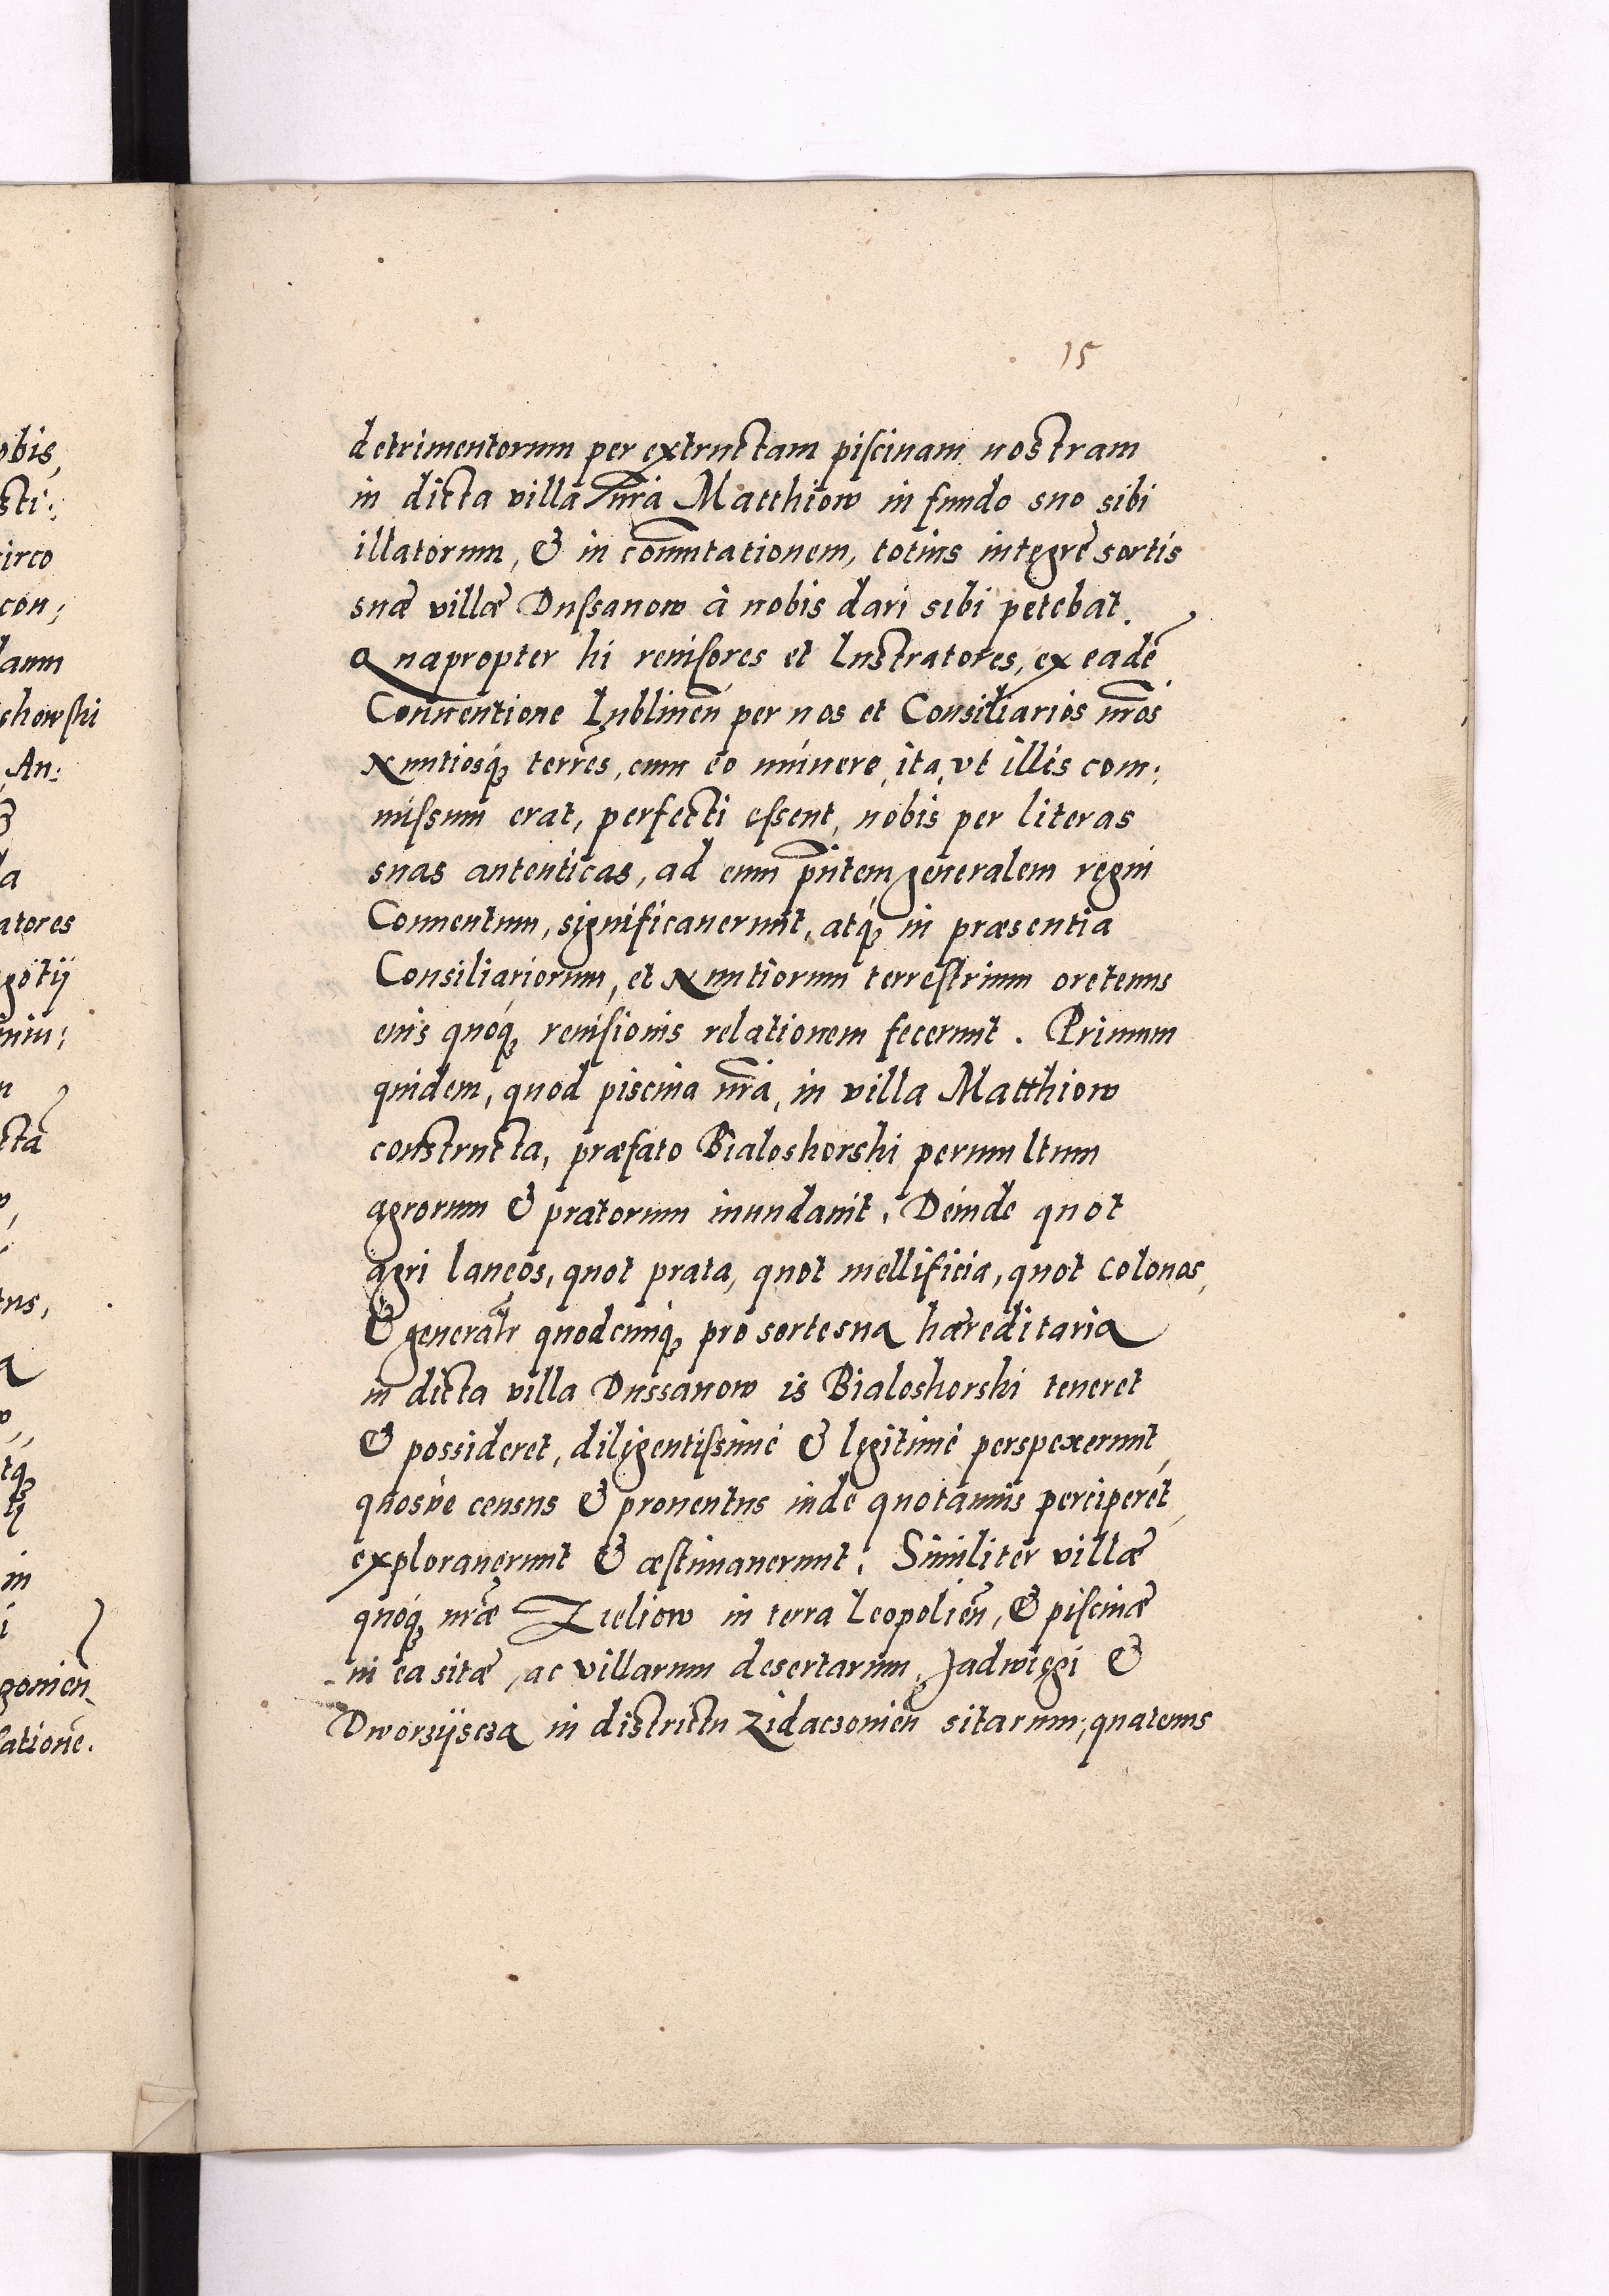 15
detrimentorum per extructam piscinam nostram
in dicta villa nr̃a Matthiow in fundo suo sibi
illatorum, & in com̃utationem, totius integrę sortis
suæ villæ Dussanow à nobis dari sibi petebat.
Quapropter hi reuisores et Lustratores, ex eadē
Conuentione Lublineñ per nos et Consiliarios nr̃os
Nuntiosq́; terrēs, cum eo munere, ita, vt illis com:
missum erat, perfecti essent, nobis per literas
suas autenticas, ad eum pñtem generalem regni
Conuentum, significauerunt, atq́; in præsentia
Consiliariorum, et Nuntiorum terrestrium oretenus
eius quóq; reuisionis relationem fecerunt. Primum
quidem, quod piscina nr̃a, in villa Matthiow
constructa, præfato Bialoskorski permultum
agrorum & pratorum inundauit. Deinde quot
agri laneos, quot prata, quot mellificia, quot colonos,
& generalr̃ quodcunq; pro sorte sua hæreditaria
in dicta villa Dussanow is Bialoskorski teneret
& possideret, diligentissimè & legitimè perspexerunt,
quosue census & prouentus inde quotannis perciperet,
explorauerunt & æstimauerunt. Similiter villæ
quóq; nr̃æ Zieliow in terra Leopolieñ, & piscinæ
in ea sitæ, ac villarum desertarum, Jadwięgi &
Dworzÿscza in districtu Zidaczouieñ sitarum, quatenus
obis,
sti:
circo
con:
danu
skowski
An:
da
atores
gotij
niu:
n
cta
tus,
a
tq;
ij
in
i
gonien
satione.